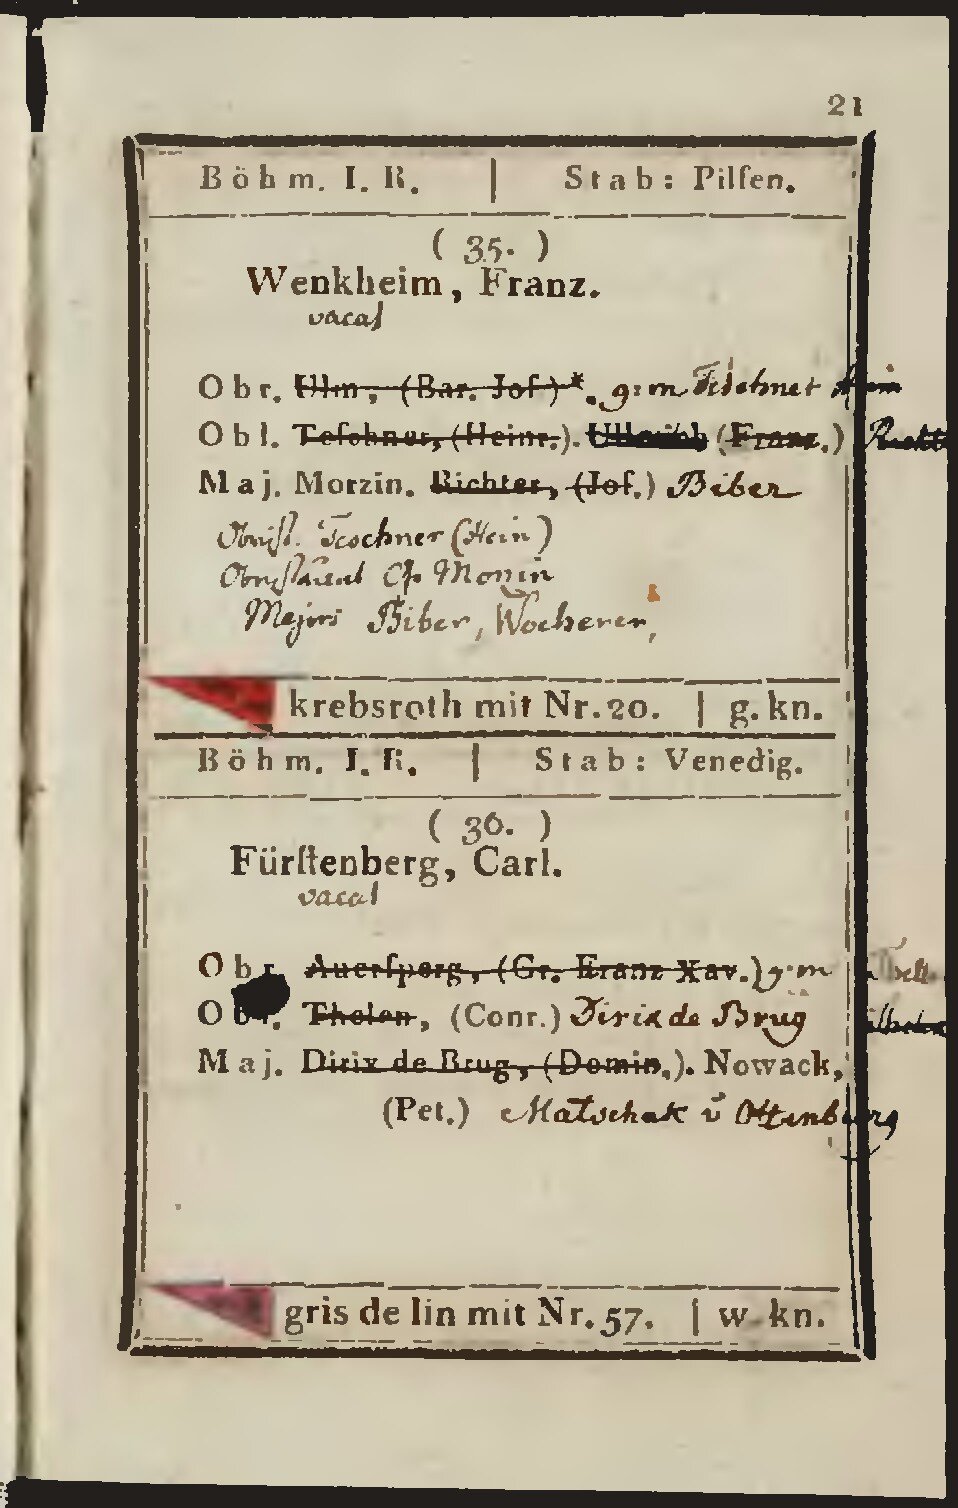 21
Böhm. I. R. | Stab: Pilſen.
( 35. )
Wenkheim, Franz.
vacat
Obr. Ulm, (Bar. Joſ.)*. g:m Teschner
Obl. Teſchner, (Heinr.). (Franz.)
Maj. Morzin. Richter, (Joſ.) Biber
Obrist. Teschner (Hein)
Morzin
Majors Biber, Wocherer,
krebsroth mit Nr. 20. | g. kn.
Böhm. I. R. | Stab: Venedig.
( 36. )
Fürſtenberg, Carl.
vacat
Obr. Auerſperg, (Gr. Franz Xav.) g:m
Tholen, (Conr.) Dirix de Brug
Maj. Dirix de Brug, (Domin.). Nowack,
(Pet.) Matschak v Ottenberg
gris de lin mit Nr. 57. | w. kn.